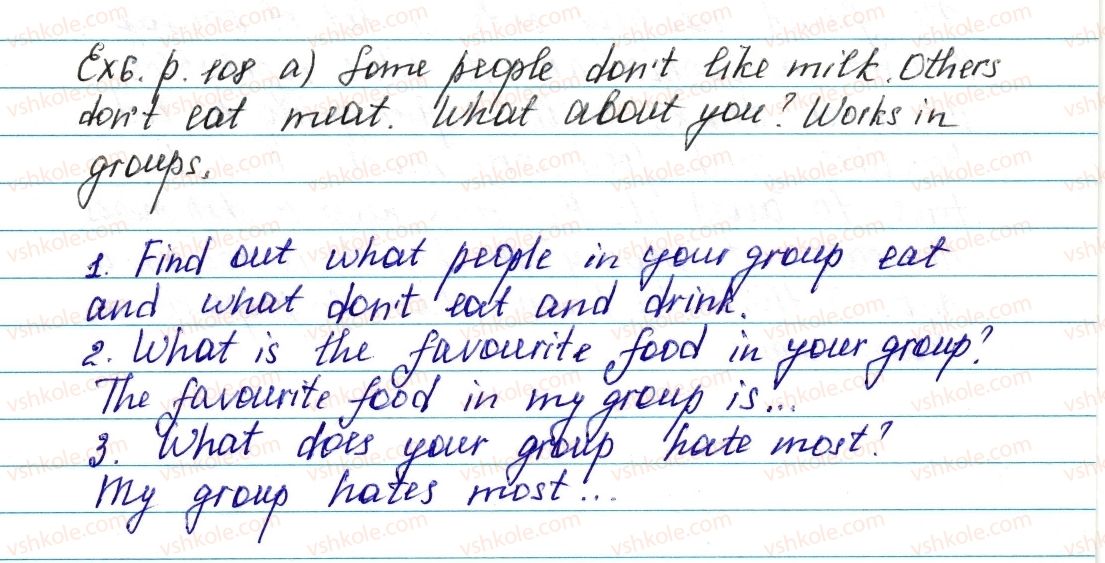 Ex6. p. 108 a) Some people don't like milk. Others
don't eat meat. What about you? Works in
groups.
1. Find out what people in your group eat
and what don't eat and drink.
2. What is the favourite food in your group?
The favourite food in my group is...
3. What does your group hate most?
My group hates most...